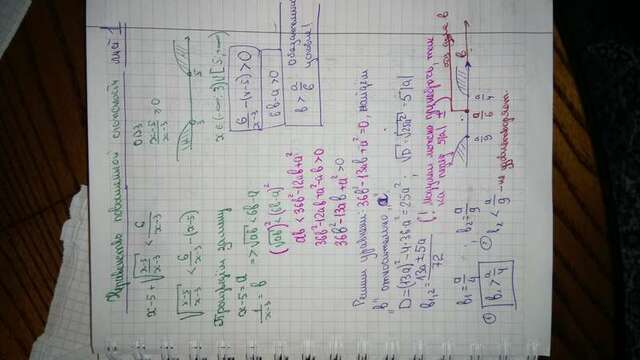 Неравенство повышенной сложности лист 1
x-5+√(x-5)/(x-3) < 6/(x-3)
ОДЗ
(x-5)/(x-3) ≥ 0
√(x-5)/(x-3) < 6/(x-3) -(x-5)
3 5
x∈(-∞, 3)∪[5,+∞)
Произведём замену
x-5=a
1/(x-3) = b
=> √ab < 6b-a
(√ab)² < (6b-a)²
ab < 36b²-12ab+a²
36b²-12ab+a²-ab>0
36b²-13ab+a²>0
6/(x-3) -(x-5)>0
6b-a>0
b > a/6
Обязательное условие!
Решим уравнение: 36b²-13ab+a²=0, найдём
"b" относительно "a"
D=(13a)²-4·36·a²=25a²; √D=√25a²=5|a|
b₁,₂=(13a±5a)/72
(! Модулем можно пренебречь, так
как перед 5|a| ±
b₁=a/4 b₂=a/9
b
a/9 a/6 a/4
① b₁>a/4
② b₂<a/9 -не удовлетворяет.